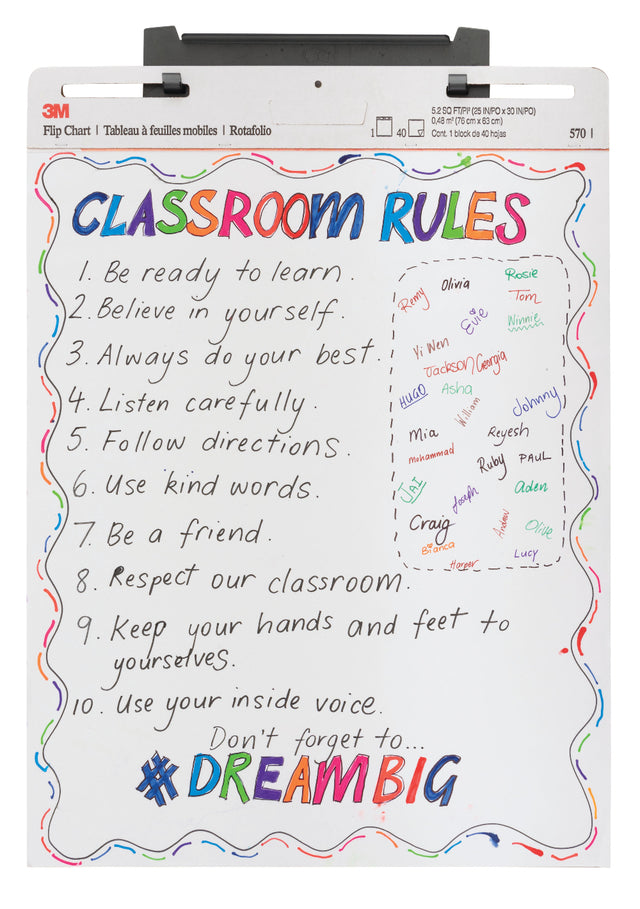 3M
Flip Chart | Tableau à feuilles mobiles | Rotafolio
1 40
5.2 SQ FT/PI² (25 IN/PO x 30 IN/PO)
0,48 m² (76 cm x 63 cm)
Cont. 1 block de 40 hojas
570
CLASSROOM RULES
1. Be ready to learn.
2. Believe in yourself.
3. Always do your best.
4. Listen carefully.
5. Follow directions.
6. Use kind words.
7. Be a friend.
8. Respect our classroom.
9. Keep your hands and feet to
yourselves.
10. Use your inside voice.
Don't forget to...
#DREAMBIG
Remy Olivia Rosie
Tom
Evie Winnie
Yi Wen
Jackson Georgia
HUGO Asha
William Johnny
Mia Reyesh
Mohammad
Ruby PAUL
JAI Joseph Aden
Craig Andrew Olive
Bianca Lucy
Harper